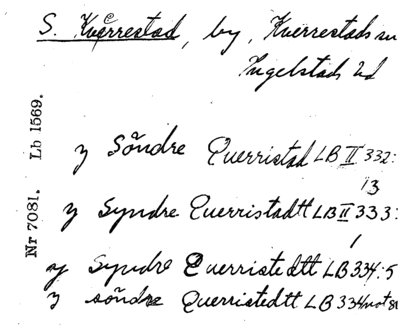 S. Kverrestad, by, Kverrestads sn
Ingelstads hd
Nr 7081. Lb 1569.
y Söndre Querristad LB II 332:
13
y Syndre Querristadtt LB II 333:
1
y Syndre Querristedtt LB 334:5
y söndre Querristedtt LB 334 not 81